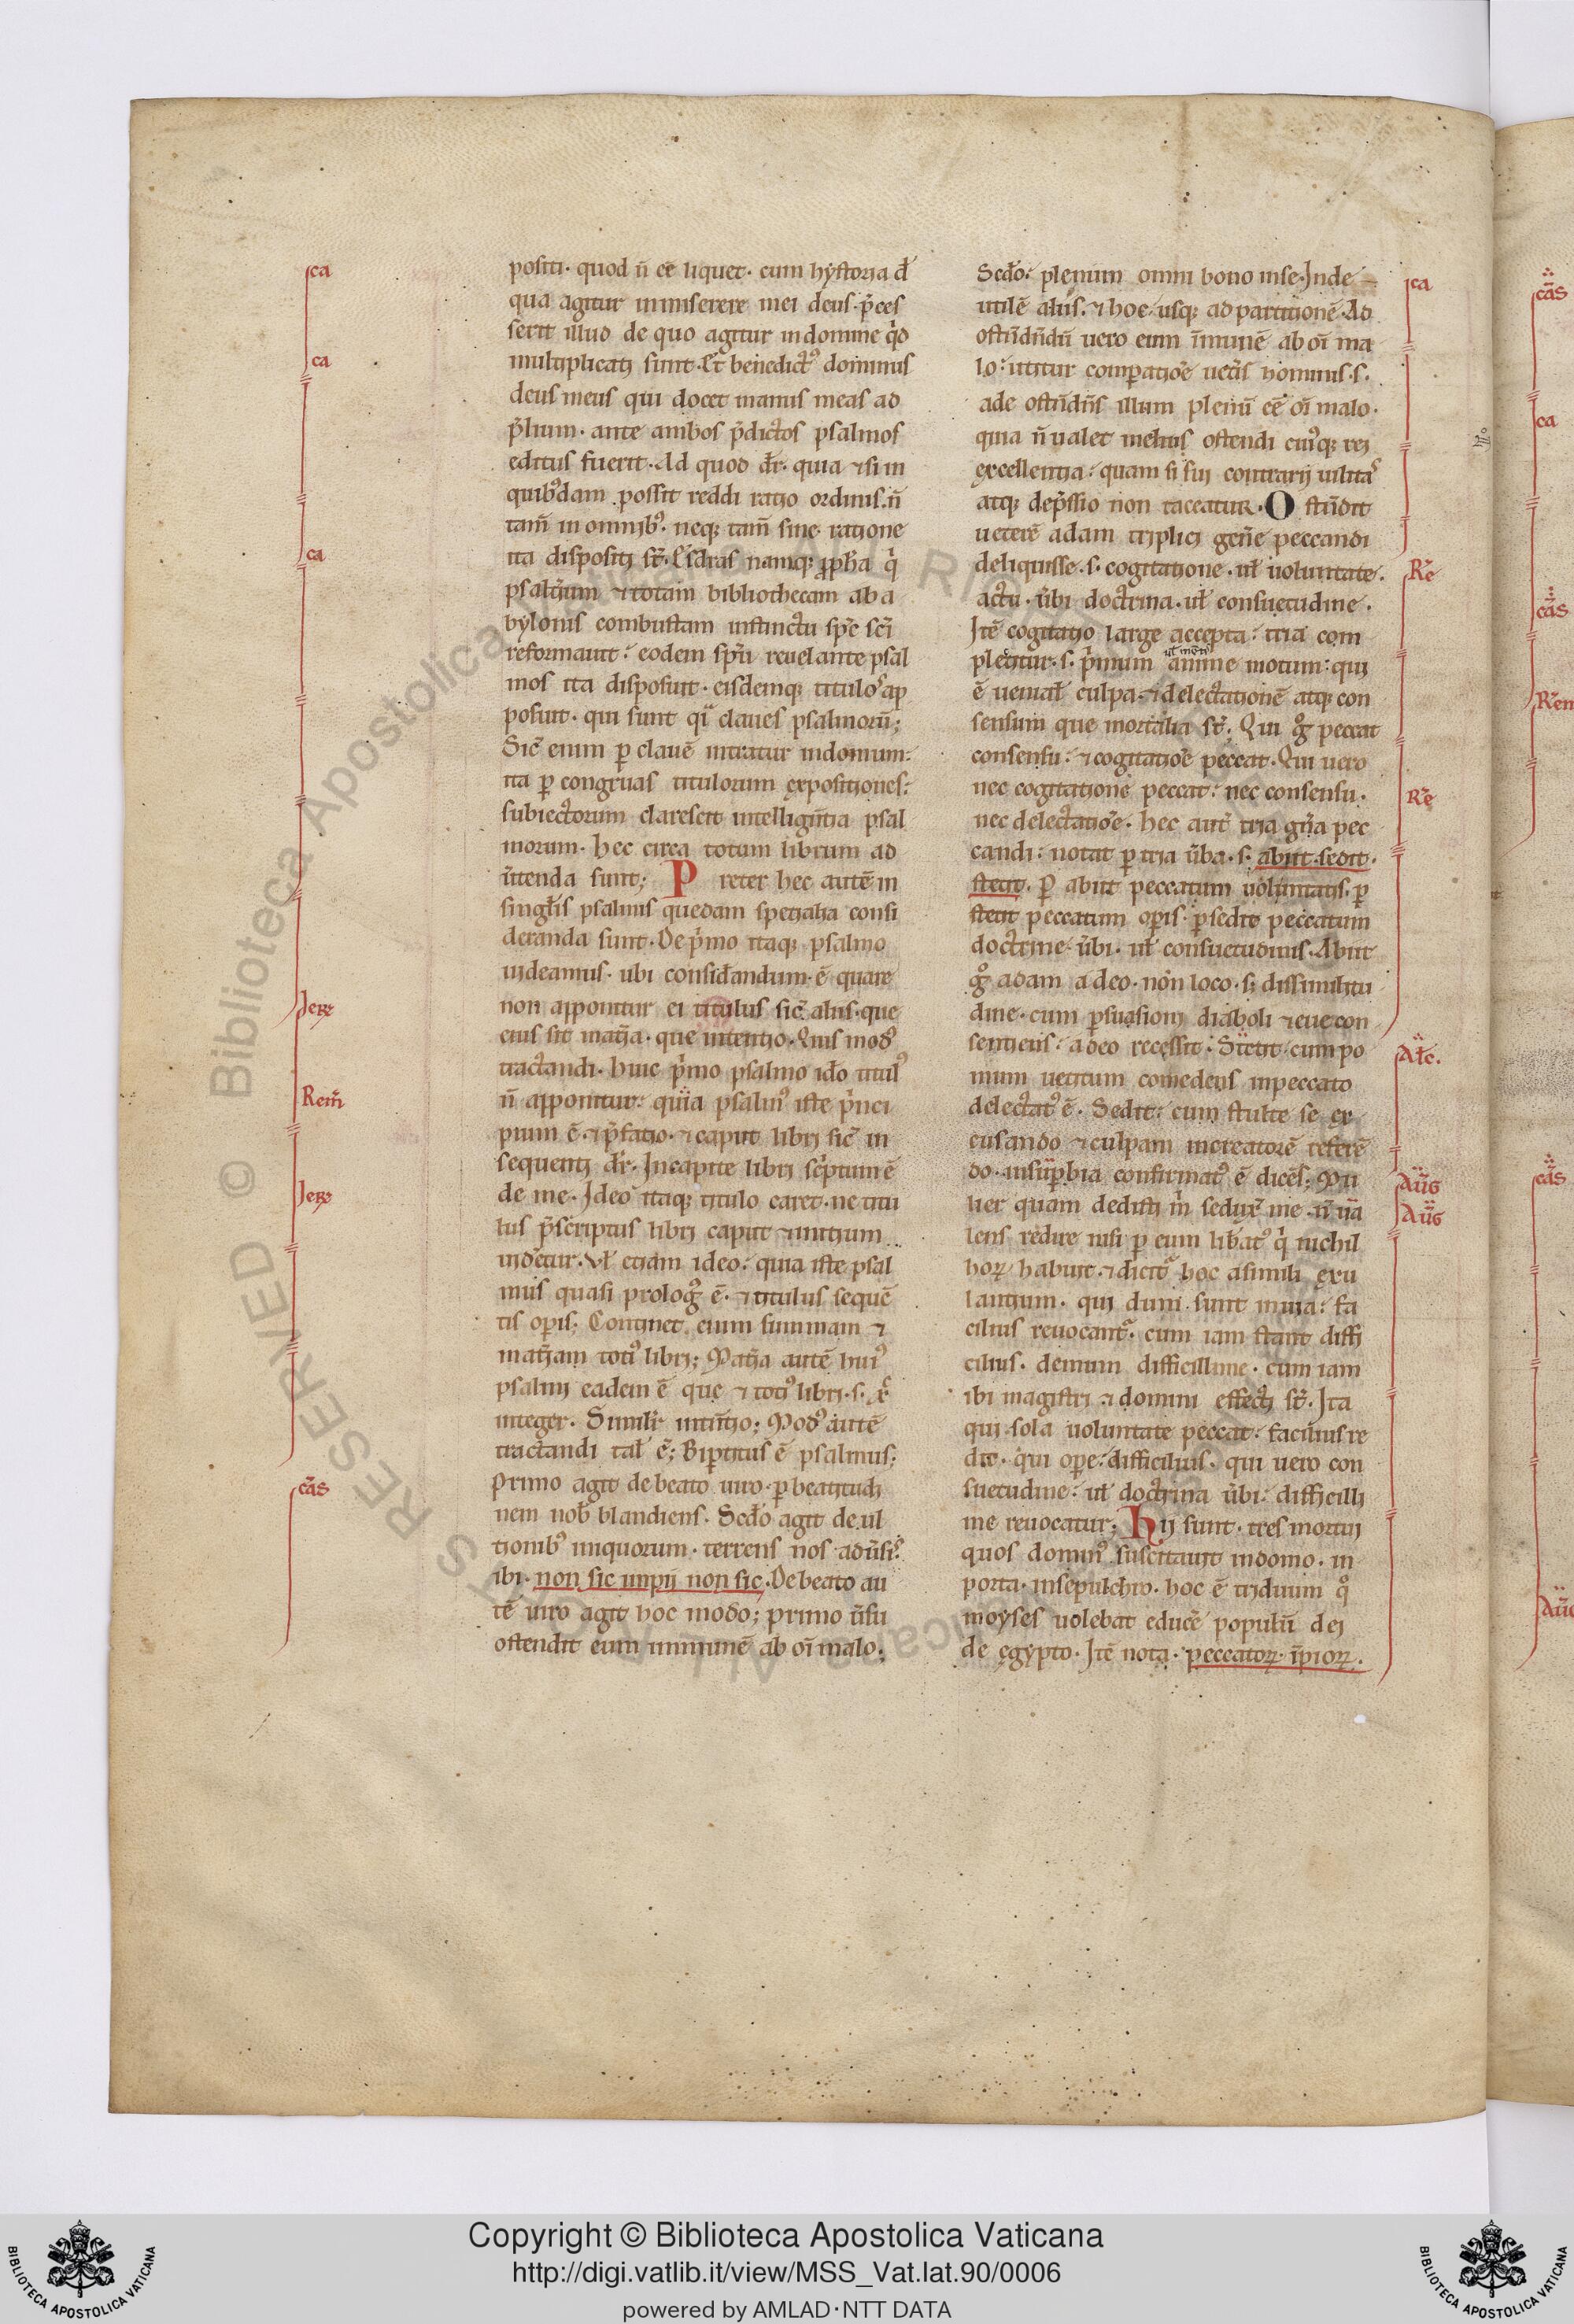 positi· quod ñ eē liquet· cum hystoria đ
qua agitur in miserere mei deus· p̄ces
serit illud de quo agitur in domine q̇d
multiplicati sunt· Et̄ benedict᷒ dominus
deus meus qui docet manus meas ad
p̄lium· ante ambos p̄dictos psalmos
editus fuerit· Ad quod dr̄· quia ⁊ si in
quibꝰdam possit reddi ratio ordinis· ñ
tam̄ in omnibꝰ· neqꝫ tam̄ sine ratione
ita dispositi st̄· Esdras namqꝫ ꝓph̄a q̇
psalt̄ium ⁊ totam bibliothecam a ba
bylonis combustam instinctu sp̄c sc̄i
reformauit: eodem sp̄u reuelante psal
mos ita disposuit· eisdemqꝫ titulos ap
posuit· qui sunt q̄i claues psalmorū;
Sic̄ enim ꝑ clauē intratur in domum:
ita ꝑ congruas titulorum expositiones:
subiectorum clarescit intellign̄tia psal
morum· hec circa totum librum ad
ūtenda sunt; Preter hec autē in
singl̄is psalmis quedam spetialia consi
deranda sunt· De ṗmo itaqꝫ psalmo
uideamus· ubi consid̄andum ē quare
non apponitur ei titulus sic̄ aliis· que
eius sit mat̄ia· que intentio· Quis modꝰ
tractandi· huic ṗmo psalmo id̄o titulꝰ
ñ apponitur: quia psalmꝰ iste ṗnci
pium ē· ⁊ p̄fatio· ⁊ caput libri sic̄ in
sequenti dr̄· In capite libri sċptum ē
de me· Ideo itaqꝫ titulo caret· ne titu
lus p̄scriptus libri caput ⁊ initium
uid̄etur· Vł etiam ideo: quia iste psal
mus quasi prologꝰ ē· ⁊ titulus sequē
tis op̄is; Continet enim summam ⁊
mat̄iam totiꝰ libri; Mat̄ia autē huiꝰ
psalmi eadem ē que ⁊ totiꝰ libri· s· xp̄c
integer· Simil̄r intn̄tio; Modꝰ autē
tractandi tał ē; Biꝑtitus ē psalmus;
Primo agit de beato uiro· ꝑ beatitudi
nem nob̄ blandiens· Scd̄o agit de ul
tionibꝰ iniquorum· terrens nos ad ūsis
ibi· non sic impii non sic· De beato au
tē uiro agit hoc modo; primo ūsu
ostendit eum immunē ab oī malo;
Scd̄o: plenum omni bono in se· Inde
utilē aliis· ⁊ hoc usqꝫ ad partitionē· Ad
ostn̄dn̄dū uero eum īmunē ab oī ma
lo: utitur comꝑatiōe uet̄is hominis· s·
ade ostn̄dn̄s illum plenū eē oī malo·
quia ñ ualet melius ostendi cuiꝰqꝫ rei
excellentia: quam si sui contrarij uilitas
atqꝫ dep̄ssio non taceatur· O stn̄dit
ueterē adam triplici gn̄e peccandi
deliquisse· s· cogitatione· uł uoluntate·
actu· ūbi doctrina· uł consuetudine·
Itē cogitatio large accepta: tria com
plectitur· s· ṗmum anime motum: qui
ē ueniał culpa· ⁊ delectationē atqꝫ con
sensum que mortalia st̄; Qui gͦ peccat
consensu: ⁊ cogitatiōe peccat· Qui uero
nec cogitatione peccat: nec consensu·
nec delectatiōe· hec aut̄ tria gn̄a pec
candi: notat ꝑ tria ūba· s· abiit· sedit·
stetit· ꝑ abiit peccatum uoluntatis· ꝑ
stetit peccatum op̄is· ꝑ sedit peccatum
doctrine ūbi· uł consuetudinis· Abiit
gͦ adam a deo· non loco· s; dissimilitu
dine· cum ꝑsuasioni diaboli ⁊ eue con
sentiens: a deo recessit· Stetit cum po
mum uetitum comedens in peccato
delectatꝰ ē· Sedit: cum stulte se ex
cusando ⁊ culpam in creatorē referē
do· in suꝑbia confirmatꝰ ē dicēs; Mu
lier quam dedisti ṁ sedux̄ me· ñ ua
lens redire nisi ꝑ eum lib̄atꝰ q̇ nichil
hoꝝ habuit· ⁊ dicit᷑ hoc a simili exu
lantium· qui dum sunt in uia: fa
cilius reuocant᷑· cum iam stant diffi
cilius· demum difficillime· cum iam
ibi magistri ⁊ domini effecti st̄· Ita
qui sola uoluntate peccat: facilius re
dit· qui oꝑe: difficilius· qui uero con
suetudine: uł doctrina ūbi: difficilli
me reuocatur; Hij sunt· tres mortui
quos dominꝰ suscitauit in domo· in
porta· in sepulchro· hoc ē triduum qͦ
moyses uolebat educē populū dei
de egypto· Itē nota· peccatoꝝ· īpioꝝ·
uł mēt̄
ca
ca
ca
Jeꝝ
Rem̄
Jeꝝ
cās
ca
Rē
Rē
Ałc·
Aūg
Aūg
cās
ca
cās
Rēm
cās
Copyright © Biblioteca Apostolica Vaticana
http://digi.vatlib.it/view/MSS_Vat.lat.90/0006
powered by AMLAD·NTT DATA
BIBLIOTECA APOSTOLICA VATICANA
BIBLIOTECA APOSTOLICA VATICANA